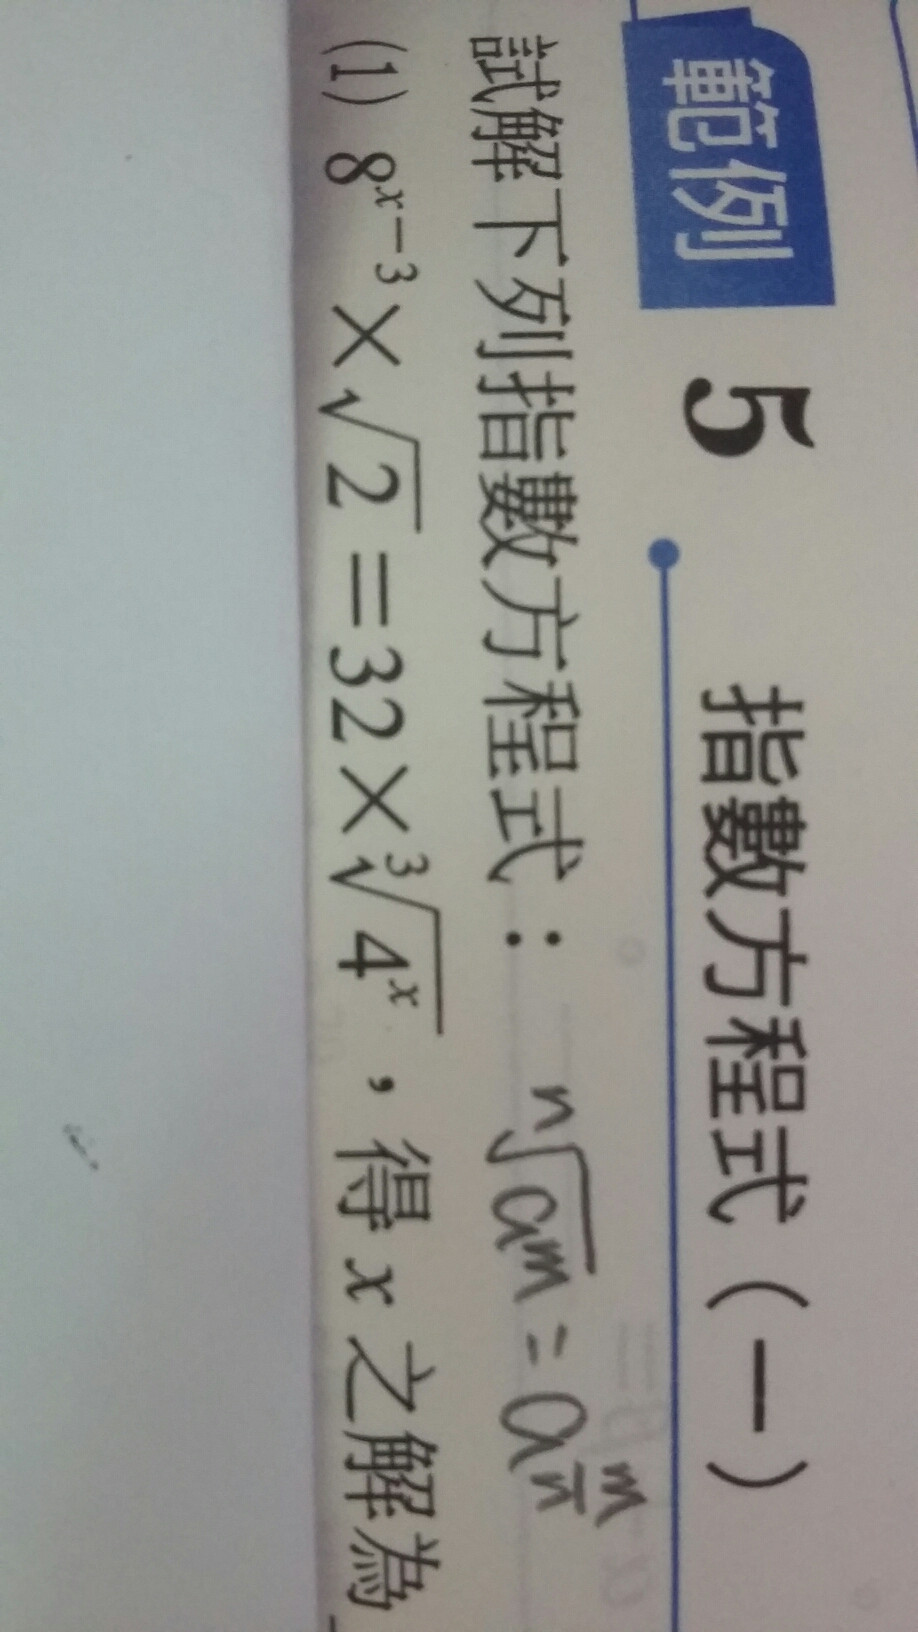 範例 5 指數方程式（一）
試解下列指數方程式：
ⁿ√am = a^(m/n)
(1) 8^(x−3)×√2=32×³√(4^x)，得 x 之解為